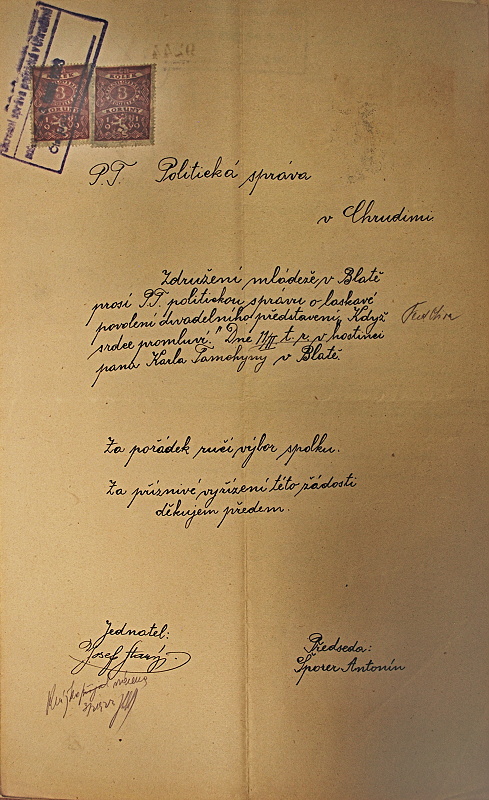 KOLEK KOLEK
3 3
KORUNY KORUNY
P.T. Politická správa
v Chrudimi
Združení mládeže v Blatě
prosí P.T. politickou správu o laskavé
povolení divadelního představení „Když
srdce promluví." Dne 11/II t. r. v hostinci
pana Karla Tamchyny v Blatě.
Za pořádek ručí výbor spolku.
Za příznivé vyřízení této žádosti
děkujem předem.
Jednatel:
Josef Starý
Předseda:
Šporer Antonín